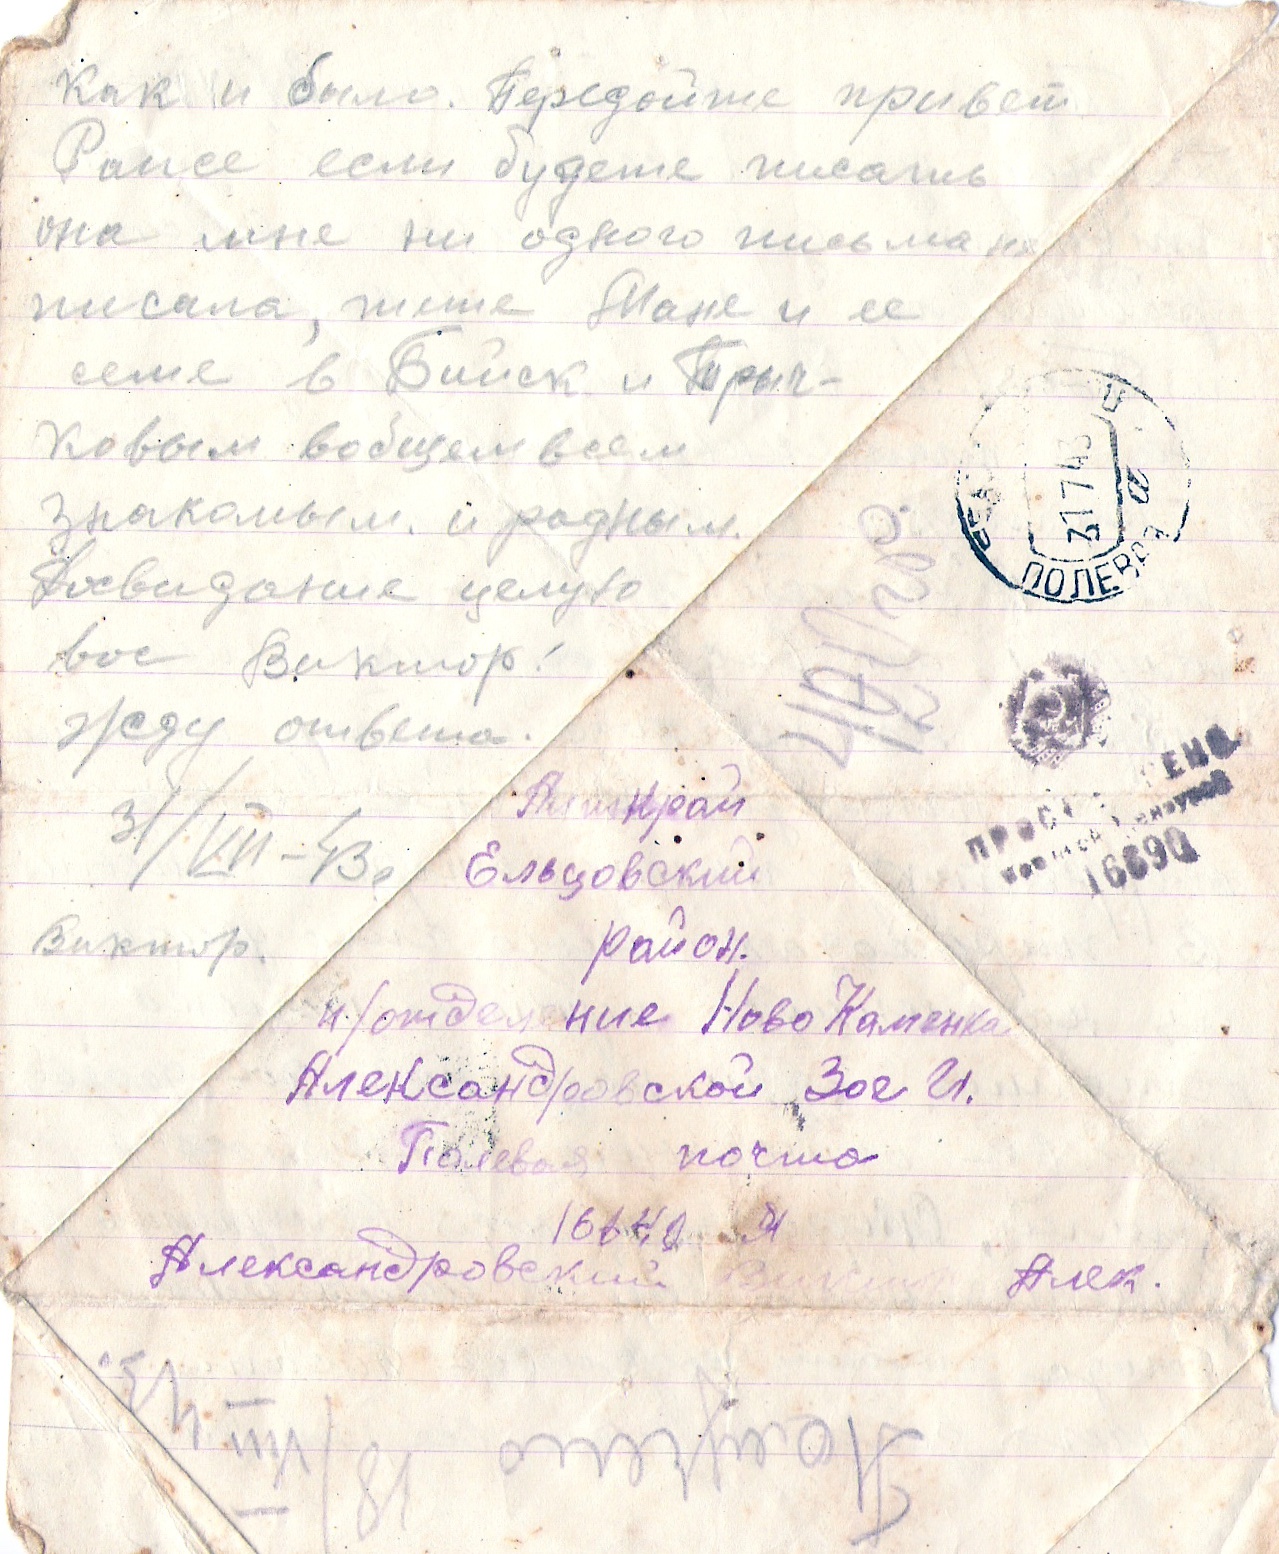 Как и было. Передойте привет
Раисе если будете писать
она мне ни одного письма не
писала, тите Мане и ее
семе в Бийск и Трыч-
ковым вобщем всем
знакомым. и родным.
Досвидание целую
вас Виктор!
жду ответа.
31/VII-43г
Виктор.
31 7 43
ПОЛЕВАЯ
а
ПРОСМОТРЕНО
военной цензурой
16690
Алт край
Ельцовский
район.
п/отделение Ново Каменка
Александровской Зое И.
Полевая почта
Александровский Виктор Алек.
18/VIII 43.